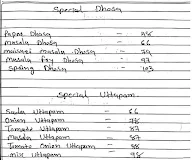 Special Dhosa
Papar Dhosa - 78
Masala Dhosa - 66
Maisuri Masala Dhosa - 79
Masala Fry Dhosa - 97
Spring Dhosa - 103
Special Uttapam
Sada Uttapam - 66
Onion Uttapam - 78
Tomato Uttapam - 87
Masala Uttapam - 87
Tomato Onion Uttapam - 98
Mix Uttapam - 98